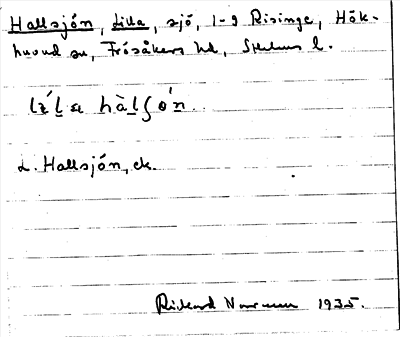 Hallsjön, Lilla, sjö, 1-9 Risinge, Hök-
huvud sn, Frösåkers hd, Sthlms l.
hàlʃǿn
L. Hallsjön, ek.
Rickard Norman 1935.